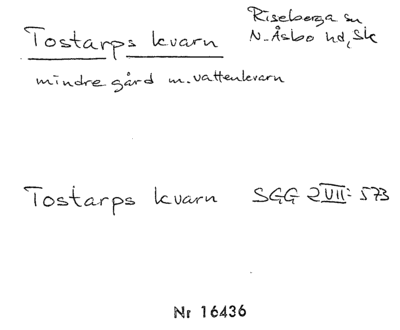 Tostarps kvarn
Riseberga sn
N-Åsbo hd, Sk
mindre gård m. vattenkvarn
Tostarps kvarn SGG 2VII: 573
Nr 16436